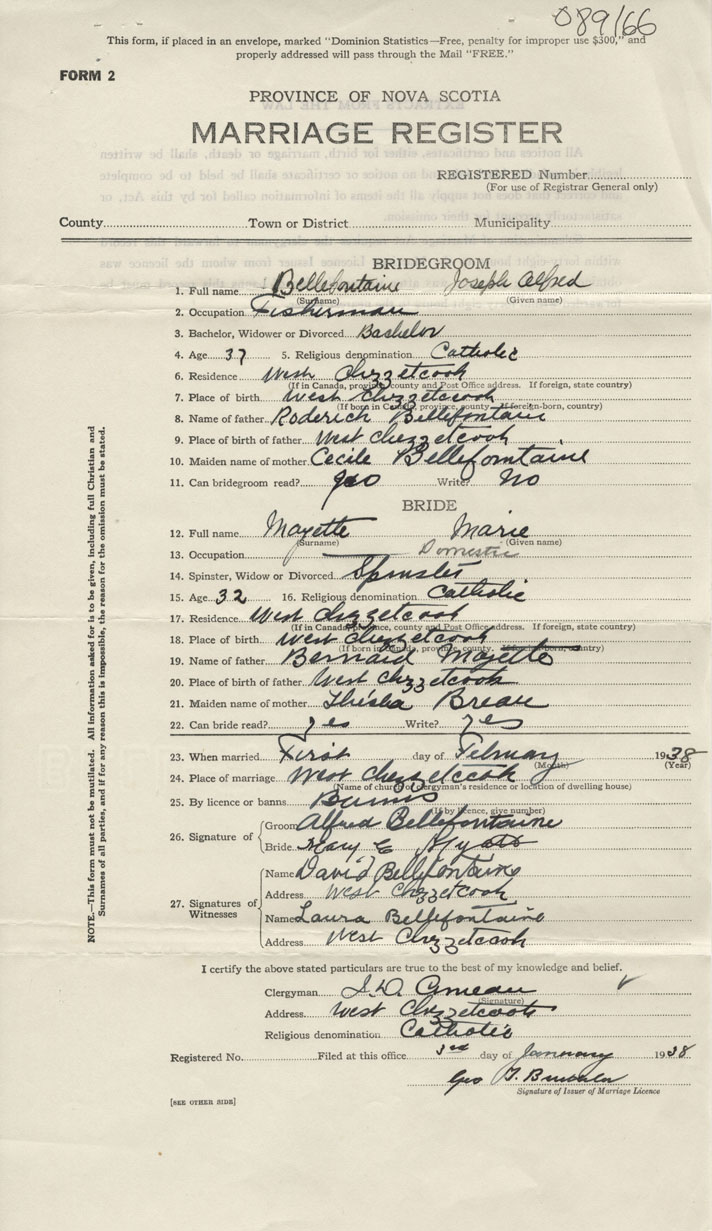 089/66
This form, if placed in an envelope, marked "Dominion Statistics—Free, penalty for improper use $300," and
properly addressed will pass through the Mail "FREE."
FORM 2
PROVINCE OF NOVA SCOTIA
MARRIAGE REGISTER
REGISTERED Number
(For use of Registrar General only)
County Town or District Municipality
BRIDEGROOM
1. Full name Bellefontaine Joseph Alfred
(Surname) (Given name)
2. Occupation Fisherman
3. Bachelor, Widower or Divorced Bachelor
4. Age 37 5. Religious denomination Catholic
6. Residence West Chezzetcook
(If in Canada, province, county and Post Office address. If foreign, state country)
7. Place of birth West Chezzetcook
(If born in Canada, province, county. If foreign-born, country)
8. Name of father Roderick Bellefontain
9. Place of birth of father West Chezzetcook
10. Maiden name of mother Cecile Bellefontaine
11. Can bridegroom read? Write? No
BRIDE
12. Full name Mayette Marie
(Surname) (Given name)
13. Occupation Domestic
14. Spinster, Widow or Divorced Spinster
15. Age 32 16. Religious denomination Catholic
17. Residence West Chezzetcook
(If in Canada, province, county and Post Office address. If foreign, state country)
18. Place of birth West Chezzetcook
(If born in Canada, province, county. If foreign-born, country)
19. Name of father Bernard Mayette
20. Place of birth of father West Chezzetcook
21. Maiden name of mother Breau
22. Can bride read? yes Write? yes
23. When married First day of February 1938
(Month) (Year)
24. Place of marriage West Chezzetcook
(Name of church or clergyman's residence or location of dwelling house)
25. By licence or banns Banns
(If by licence, give number)
26. Signature of Groom Alfred Bellefontaine
Bride Mary E Myatt
27. Signatures of Witnesses
Name David Bellefontaine
Address West Chezzetcook
Name Laura Bellefontaine
Address West Chezzetcook
I certify the above stated particulars are true to the best of my knowledge and belief.
Clergyman
(Signature)
Address West Chezzetcook
Religious denomination Catholic
Registered No. Filed at this office 3rd day of January 1938
Geo
Signature of Issuer of Marriage Licence
[SEE OTHER SIDE]
NOTE.—This form must not be mutilated. All information asked for is to be given, including full Christian and
Surnames of all parties, and if for any reason this is impossible, the reason for the omission must be stated.